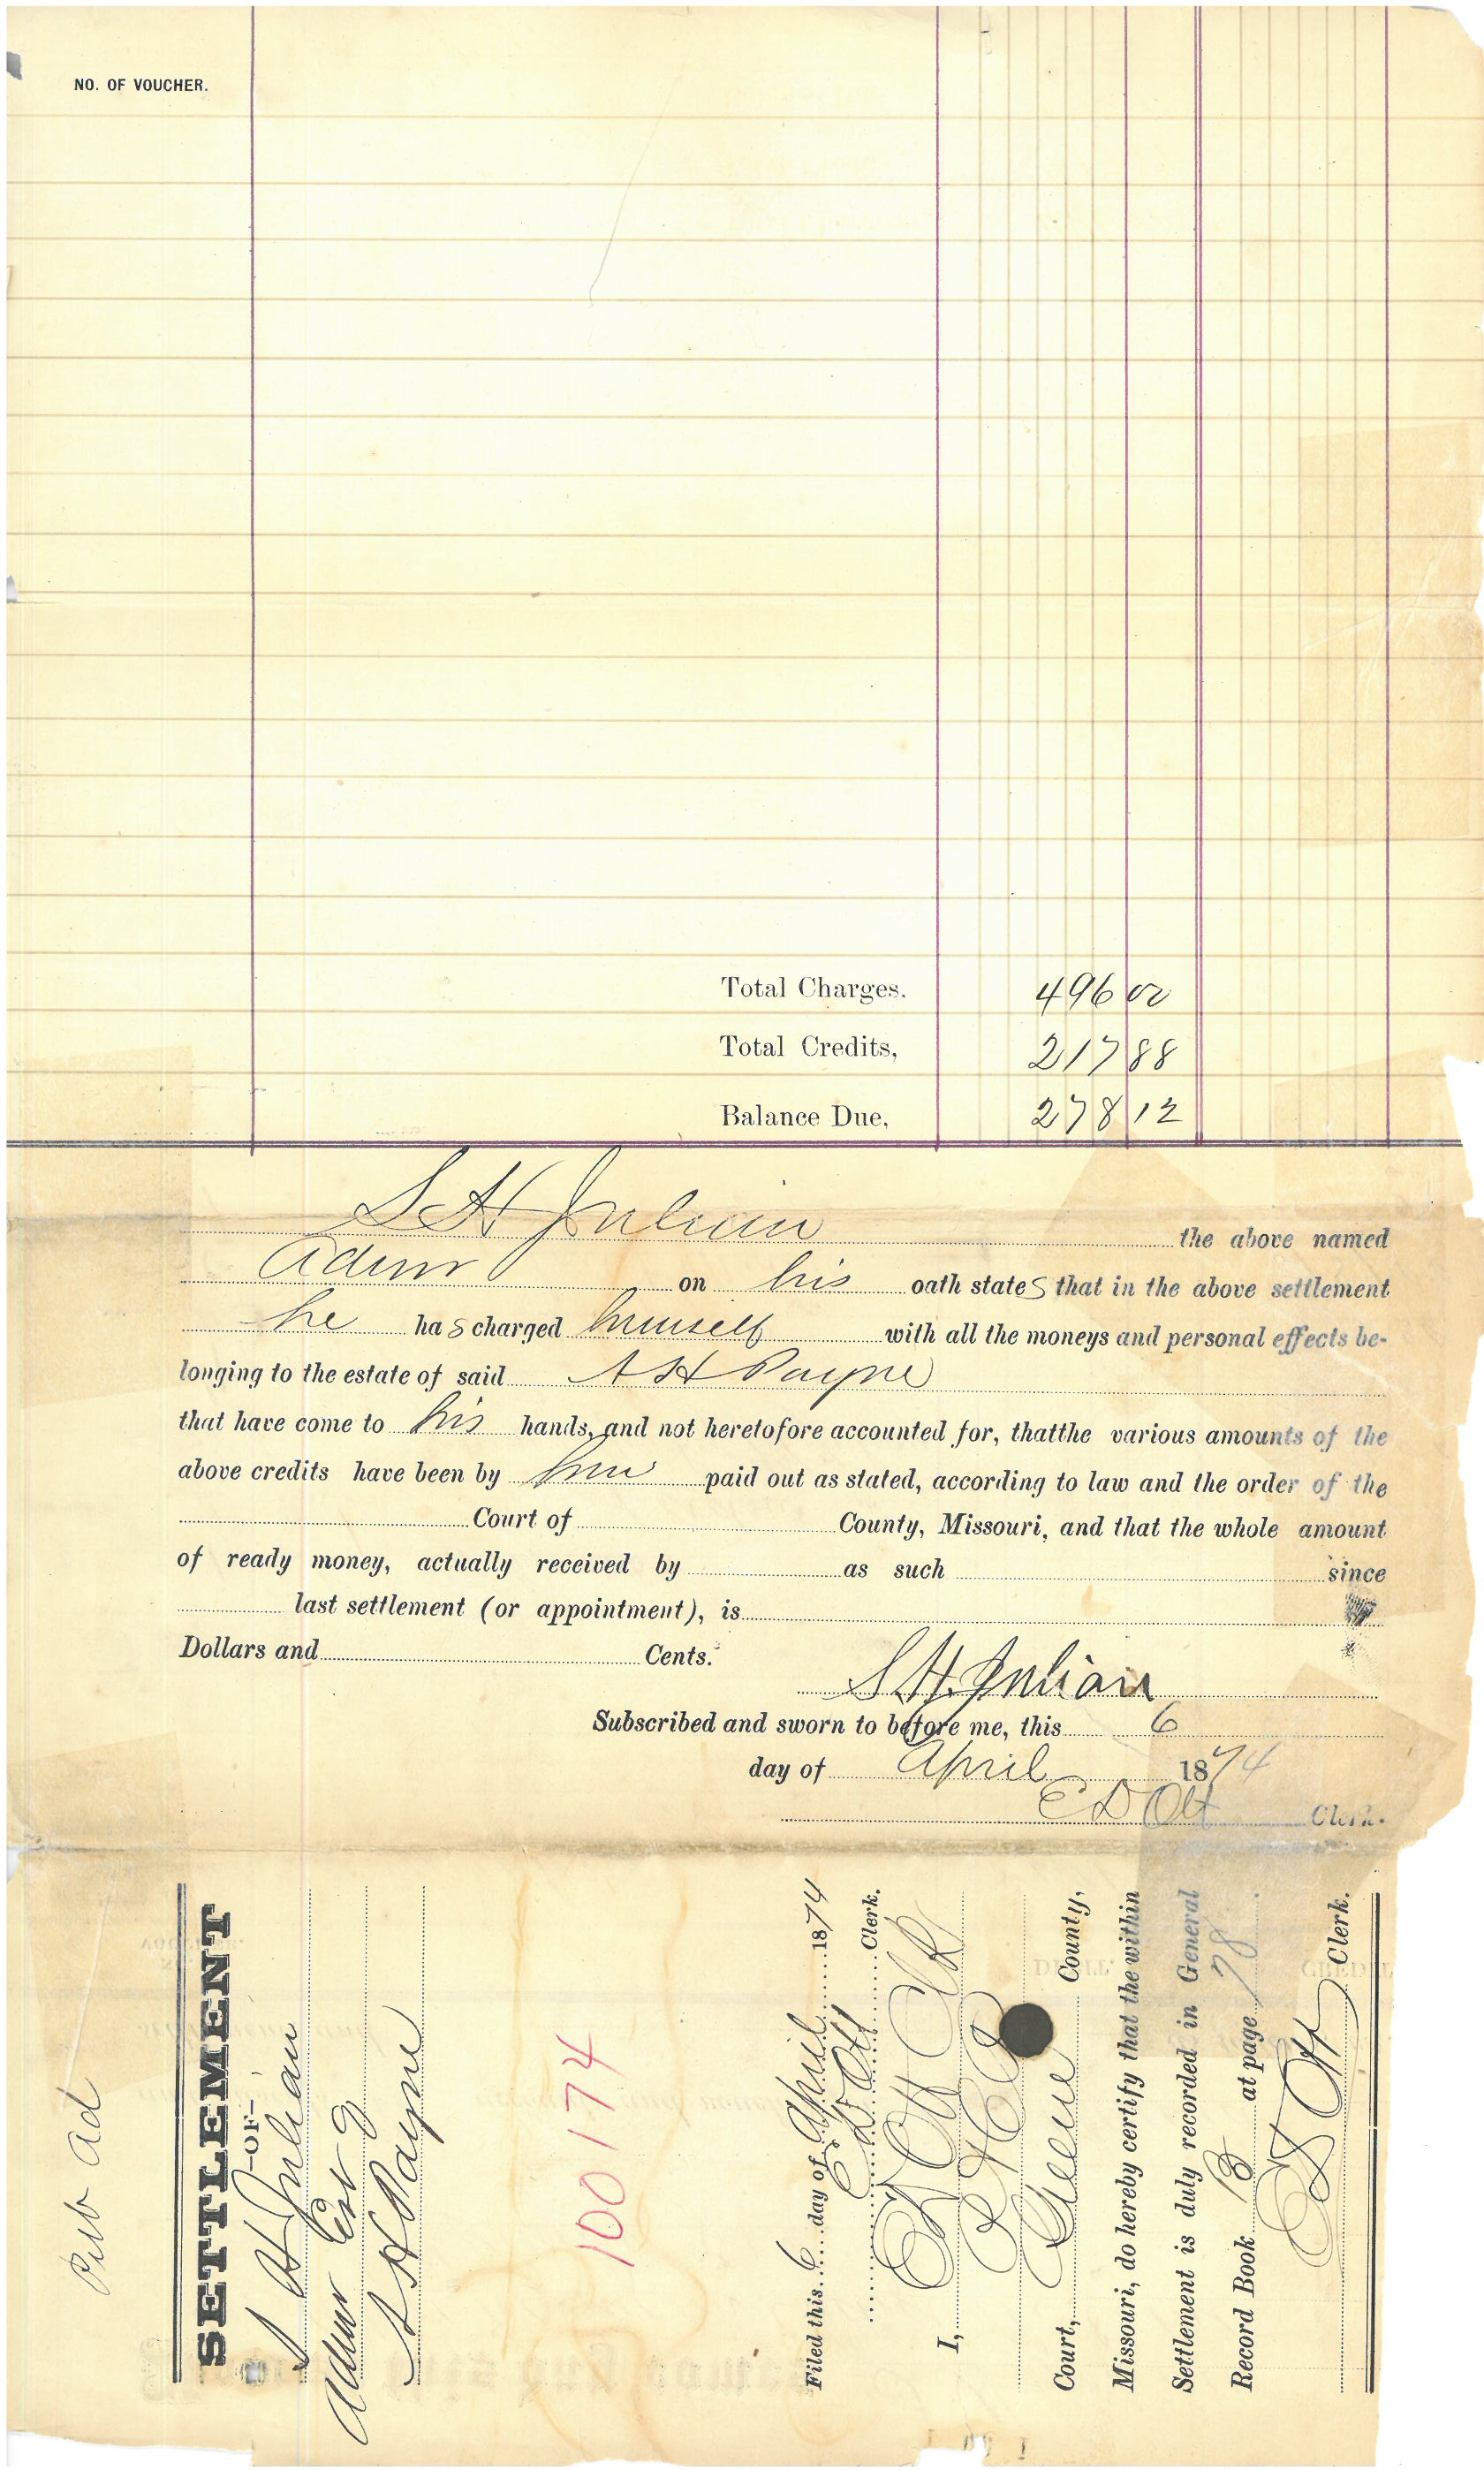 NO. OF VOUCHER.
Total Charges. 496 00
Total Credits, 217 88
Balance Due, 278 12
S H Julian the above named
Admr on his oath states that in the above settlement
he has charged himself with all the moneys and personal effects be-
longing to the estate of said A H Payne
that have come to his hands, and not heretofore accounted for, thatthe various amounts of the
above credits have been by him paid out as stated, according to law and the order of the
Court of County, Missouri, and that the whole amount
of ready money, actually received by as such since
last settlement (or appointment), is
Dollars and Cents.
S.H. Julian
Subscribed and sworn to before me, this 6
day of April 1874
E D Ott Clerk.
Pub Ad
SETTLEMENT
—OF—
S H Julian
Admr Est
A H Payne
100174
Filed this 6 day of April 1874
E D Ott Clerk.
I, E D Ott Clk
Court, Greene County,
Missouri, do hereby certify that the within
Settlement is duly recorded in General
Record Book B at page 78
E D Ott Clerk.